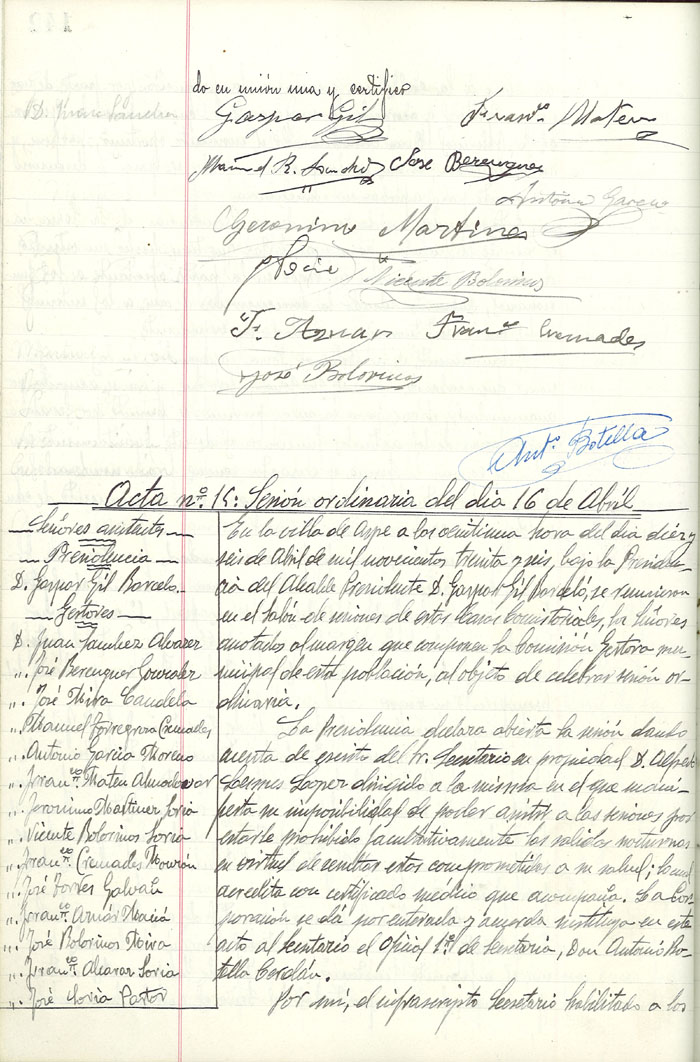 do en unión mia y certifico
Gaspar Gil
Franco Mateu
Manuel R.
Jose Berenguer
Antonio Garcia
Geronimo Martinez
Vicente Bolorinos
F. Aznar
Franco Cremades
José Bolorinos
Anto Botella
Acta nº 15: Sesión ordinaria del dia 16 de Abril
Señores asistentes
Presidencia
D. Gaspar Gil Barcelo.
Gestores
D. Juan Sanchez Alvarez
". José Berenguer Gonzalez
". José Mira Candela
". Manuel Torregrosa Cremades
". Antonio Garcia Moreno
". Franco Mateu Almodovar
". Jeronimo Martinez Soria
". Vicente Bolorinos Soria
". Franco Cremades
". José Torres Galvañ
". Franco Aznár Maciá
". José Bolorinos Mira
". Franco Alcaraz Soria
". José Soria Pastor
En la villa de Aspe a las veintiuna hora del dia diez y
seis de Abril de mil novecientos treinta y seis, bajo la Presiden-
cia del Alcalde Presidente D. Gaspar Gil Barceló, se reunieron
en el Salón de sesiones de estas Casas Consistoriales, los señores
anotados al margen que componen la Comisión Gestora mu-
nicipal de esta población, al objeto de celebrar sesión or-
dinaria.
La Presidencia declara abierta la sesión dando
cuenta de escrito del Sr. Secretario en propiedad D. Alfredo
Lopez dirigido a la misma en el que mani-
fiesta su imposibilidad de poder asistir a las sesiones por
estarle prohibido facultativamente las salidas nocturnas
en virtud de resultar estos comprometidos a su salud; lo cual
acredita con certificado médico que acompaña. La Cor-
poración se dá por enterada y acuerda sustituya en este
acto al Secretario el Oficial 1º de Secretaria, Don Antonio Bo-
tella Cerdán.
Por mi, el infrascripto Secretario habilitado a los